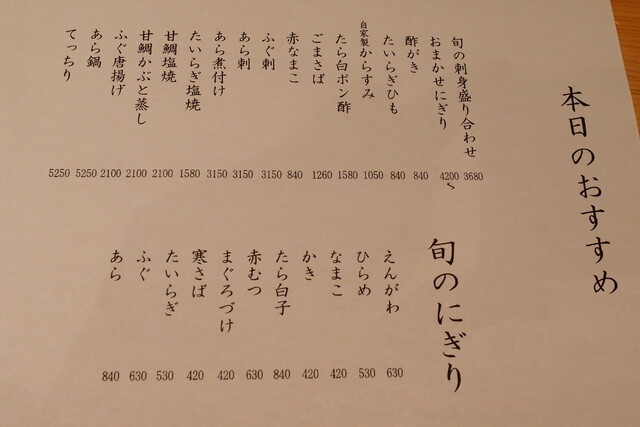 本日のおすすめ
旬の刺身盛り合わせ 3680
おまかせにぎり 4200〜
酢がき 840
たいらぎひも 840
自家製からすみ 1050
たら白ポン酢 1580
ごまさば 1260
赤なまこ 840
ふぐ刺 3150
あら刺 3150
あら煮付け 3150
たいらぎ塩焼 1580
甘鯛塩焼 2100
甘鯛かぶと蒸し 2100
ふぐ唐揚げ 2100
あら鍋 5250
てっちり 5250
旬のにぎり
えんがわ 630
ひらめ 530
なまこ 420
かき 420
たら白子 840
赤むつ 630
まぐろづけ 420
寒さば 420
たいらぎ 530
ふぐ 630
あら 840